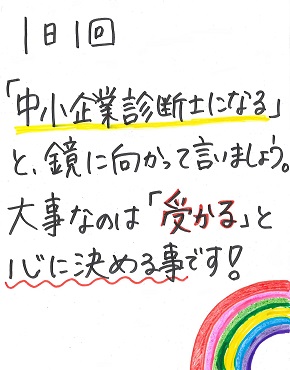 1日1回
「中小企業診断士になる」
と、鏡に向かって言いましょう。
大事なのは「受かる」と
心に決める事です！